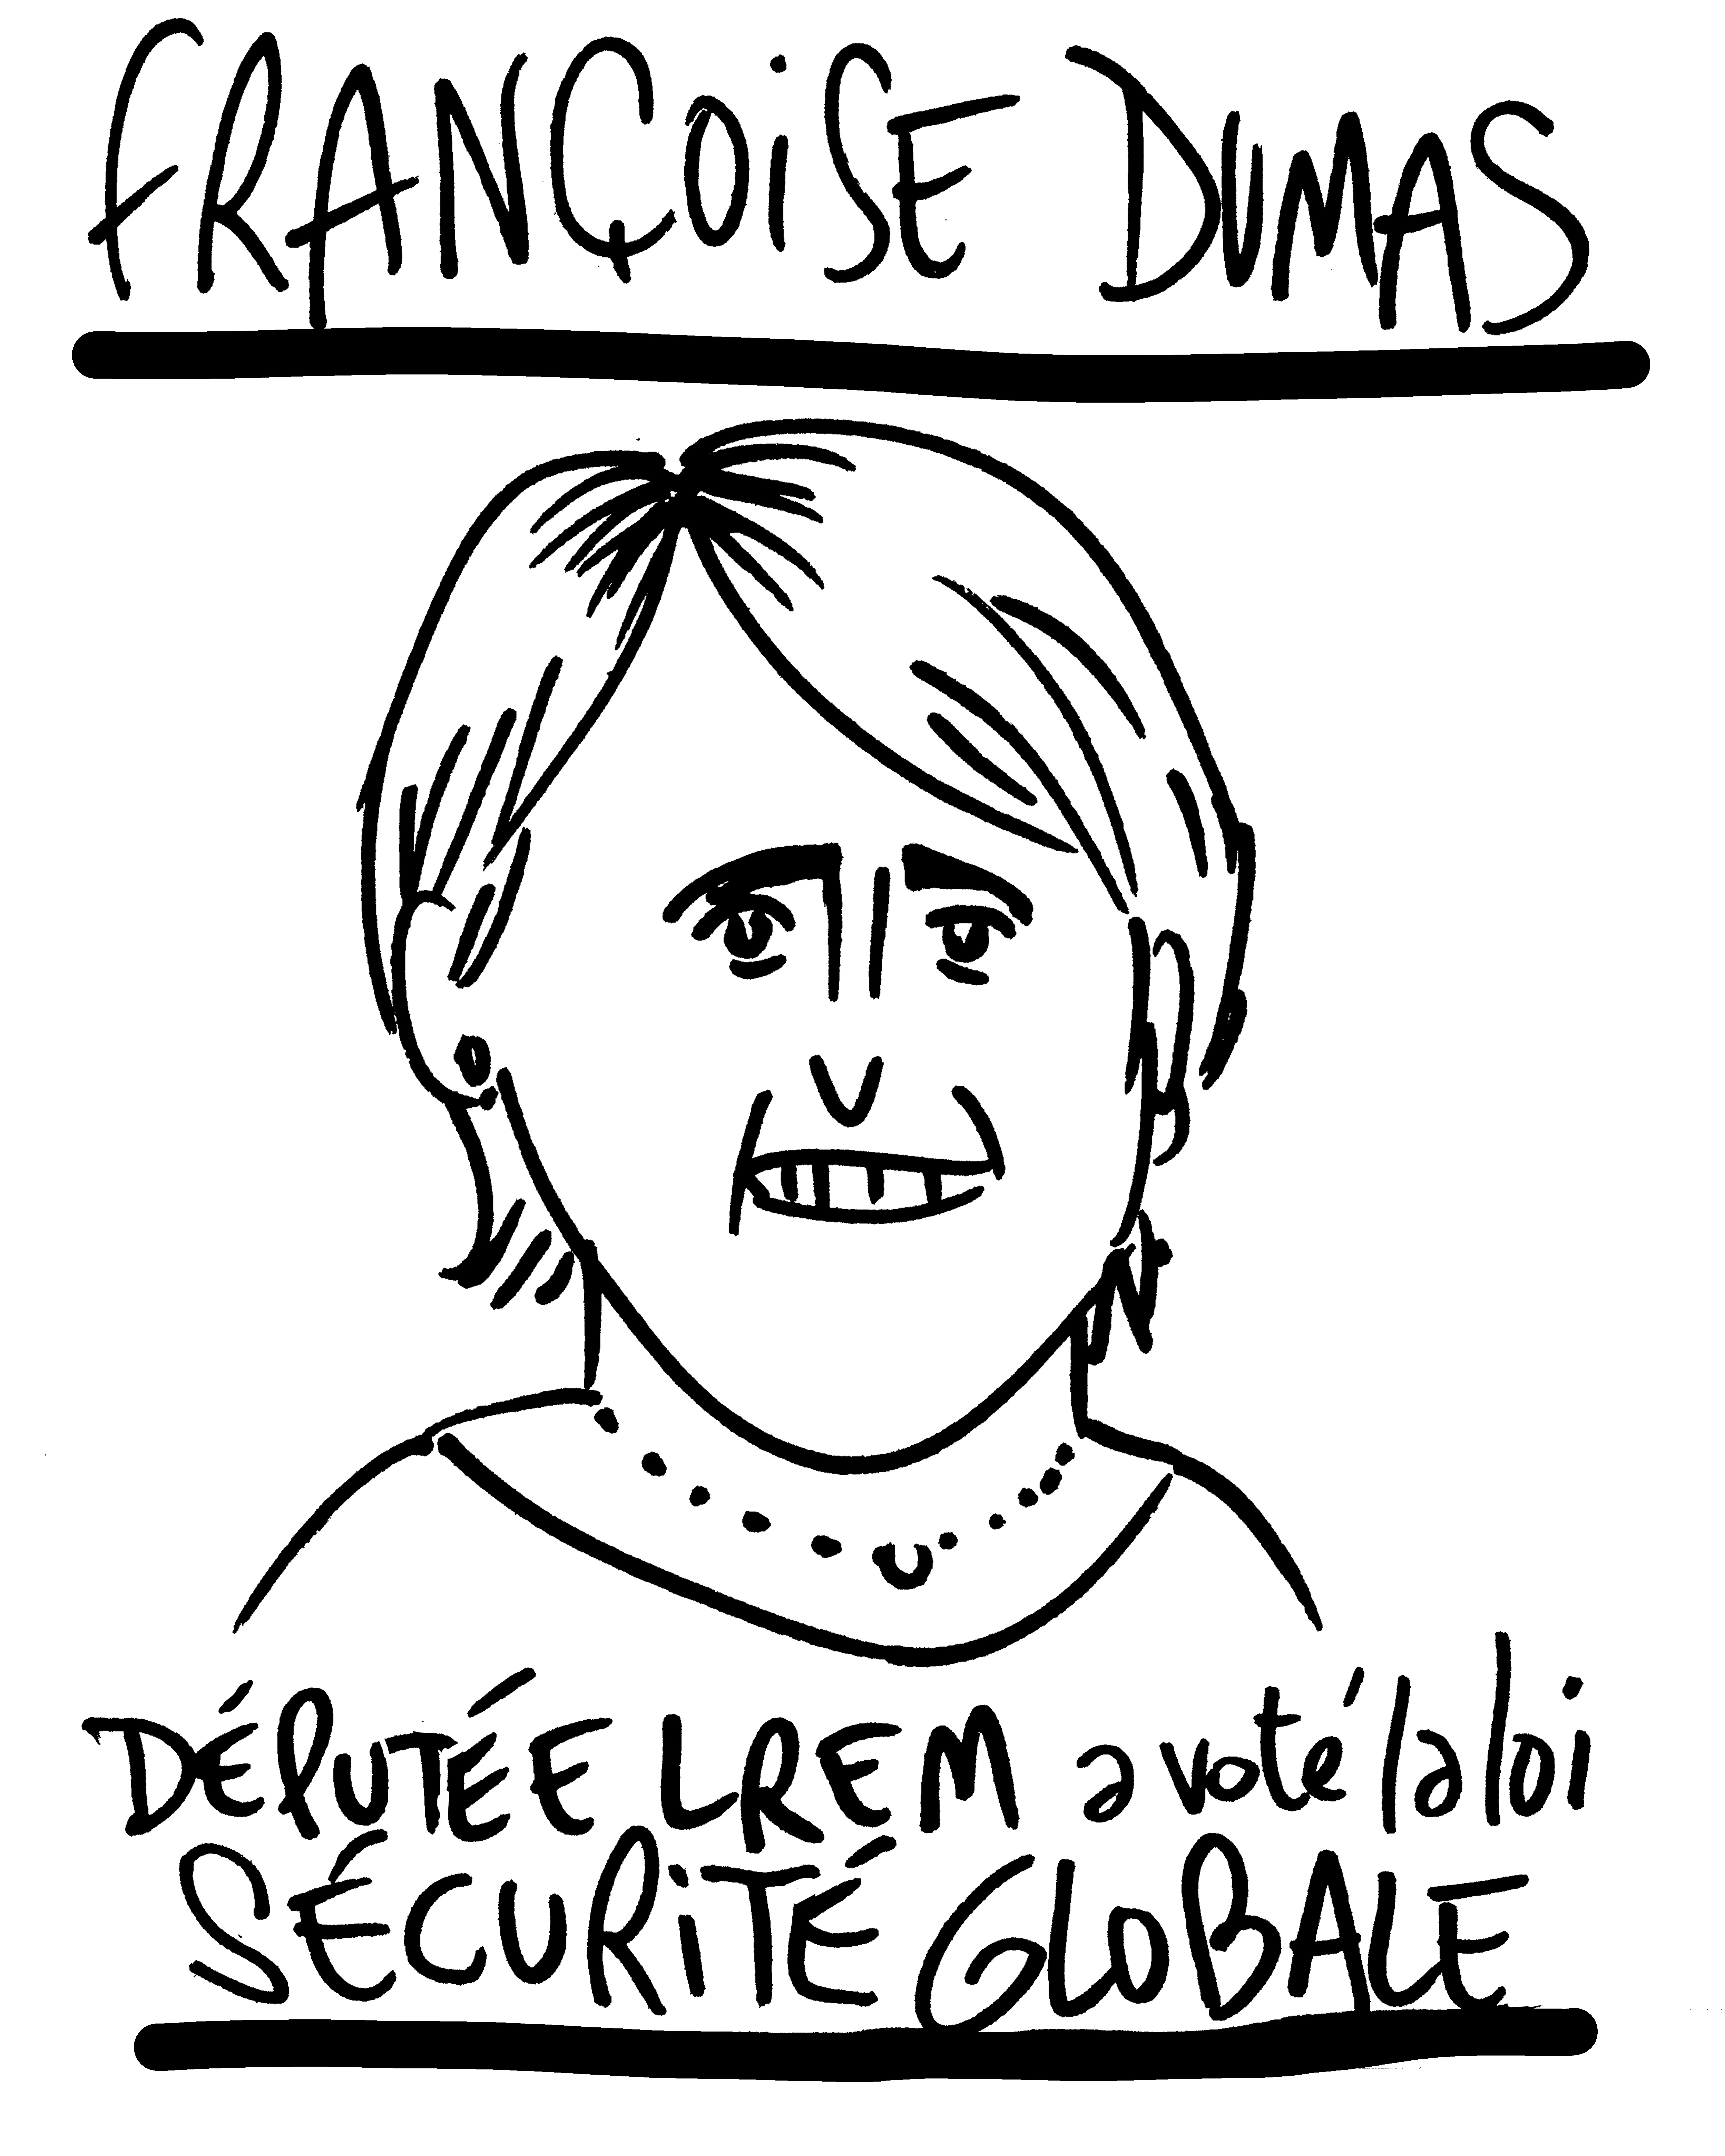 FRANÇOiSE DUMAS
DÉPUTÉE LREM a voté la loi
SÉCURiTÉ GLOBALE